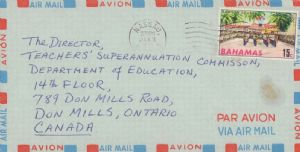 AVION
AIR MAIL
AVION
AIR MAIL
AVION
AIR MAIL
NASSAU
BAHAMAS 15c
The Director,
Teachers' Superannuation Commisson,
Department of Education,
14th Floor,
789 Don Mills Road,
Don Mills, Ontario
Canada
PAR AVION
VIA AIR MAIL
AIR MAIL
AVION
AIR MAIL
AVION
AIR MAIL
AVION
AIR MAIL